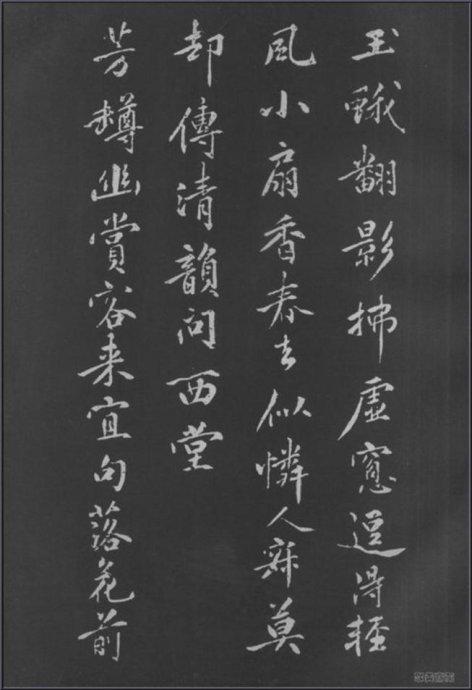 玉蛾翻影拂虛窓逗得輕
風小扇香春去似憐人寂莫
却傳清韻問西堂
芳罇幽賞客来宜句落花前